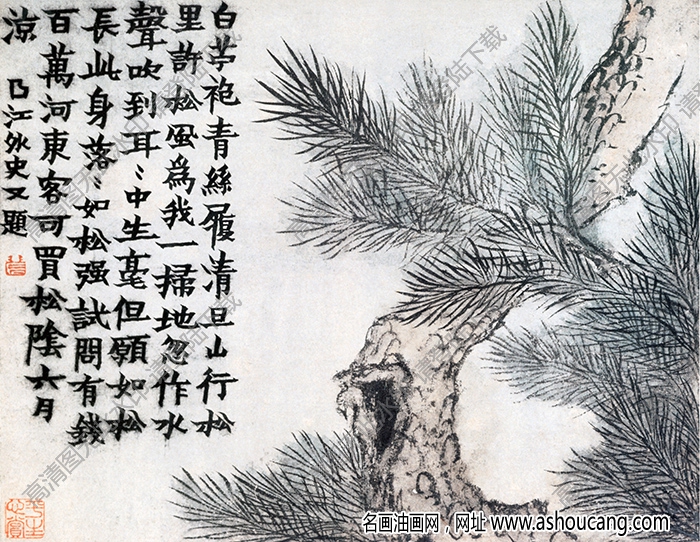 白苧袍青絲履清旦山行松
里許松風爲我一掃地忽作水
聲吹到耳〻中生毫但願如松
長此身落〻如松强試問有錢
百萬河東客可買松陰六月
涼
曲江外史又題
名画油画网，网址 www.ashoucang.com